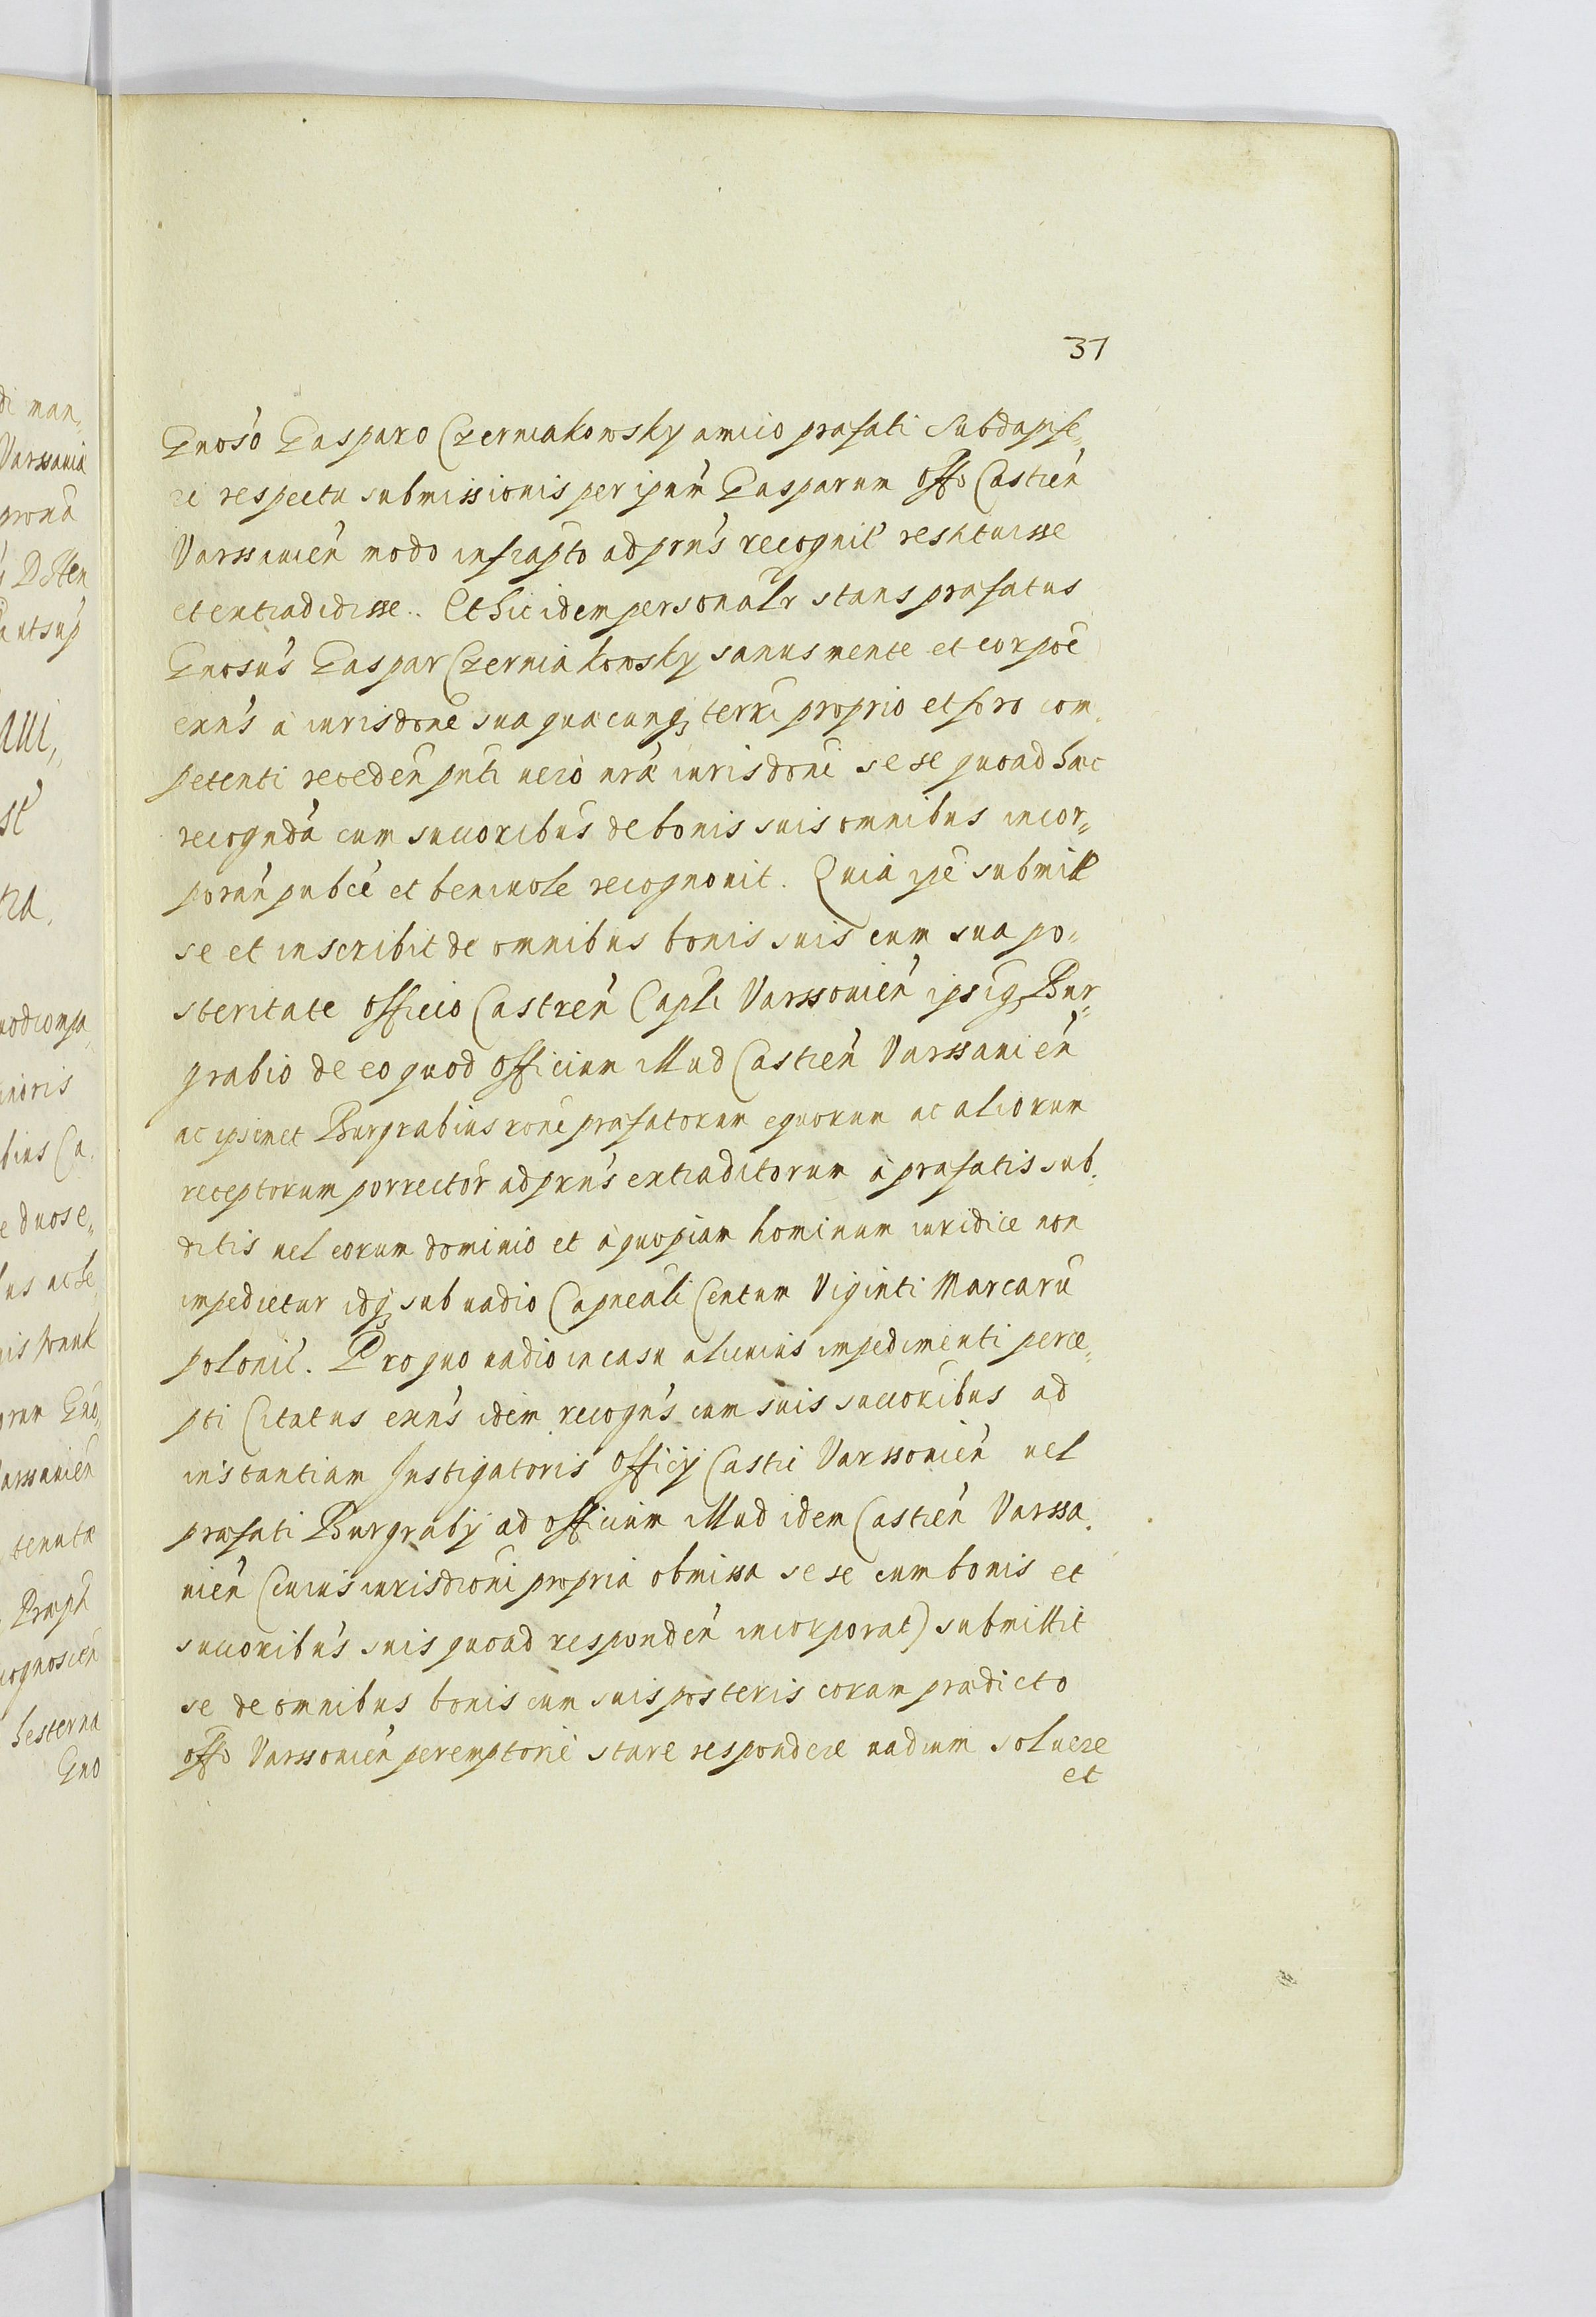 37
Gnoso Gasparo Czerniakowsky amico præfati Subdapife-
ri respectu submissionis per ipum Gasparum Offo Castren
Varssauien modo infrapto ad prns recognit restituisse
et extradidisse. Et hic idem personalr stans præfatus
Gnosus Gaspar Czerniakowsky sanus mente et corpoe
exns a iurisdone sua quacunq terræ proprio et foro com-
petenti receden pnti uero nræ iurisdoni sese quoad hac
recognda cum succoribus de bonis suis omnibus incor-
poran pubce et beniuole recognouit. Quia ipe submitt
se et inscribit de omnibus bonis suis cum sua po-
steritate Officio Castren Capli Varssouien ipsiq Bur-
grabio de eo quod Officium illud Castren Varssauien
ac ipsemet Burgrabius rone præfatorum equorum ac aliorum
receptorum porrector ad prns extraditorum a præfatis sub-
ditis uel eorum dominio et a quopiam hominum iuridice non
impedietur idq sub uadio Capneali Centum Viginti Marcaru
polonil. Pro quo uadio in casu alicuius impedimenti perce-
pti Citatus exns idem recogns cum suis succoribus ad
instantiam Instigatoris Officij Castri Varssouien uel
præfati Burgrabij ad officium illud idem Castren Varssa-
uien (cuius iurisdioni propria obmissa sese cum bonis et
succoribus suis quoad responden incorporat) submittit
se de omnibus bonis cum suis posteris coram prædicto
offo Varssouien peremptorie stare respondere uadium soluere
et
di man-
Varssauiæ
ut sup
aui,
noris
bius Ca-
e duos e-
orum Gno-
arssauien
tenutæ
Præph
cognoscen
hesterna
Gno